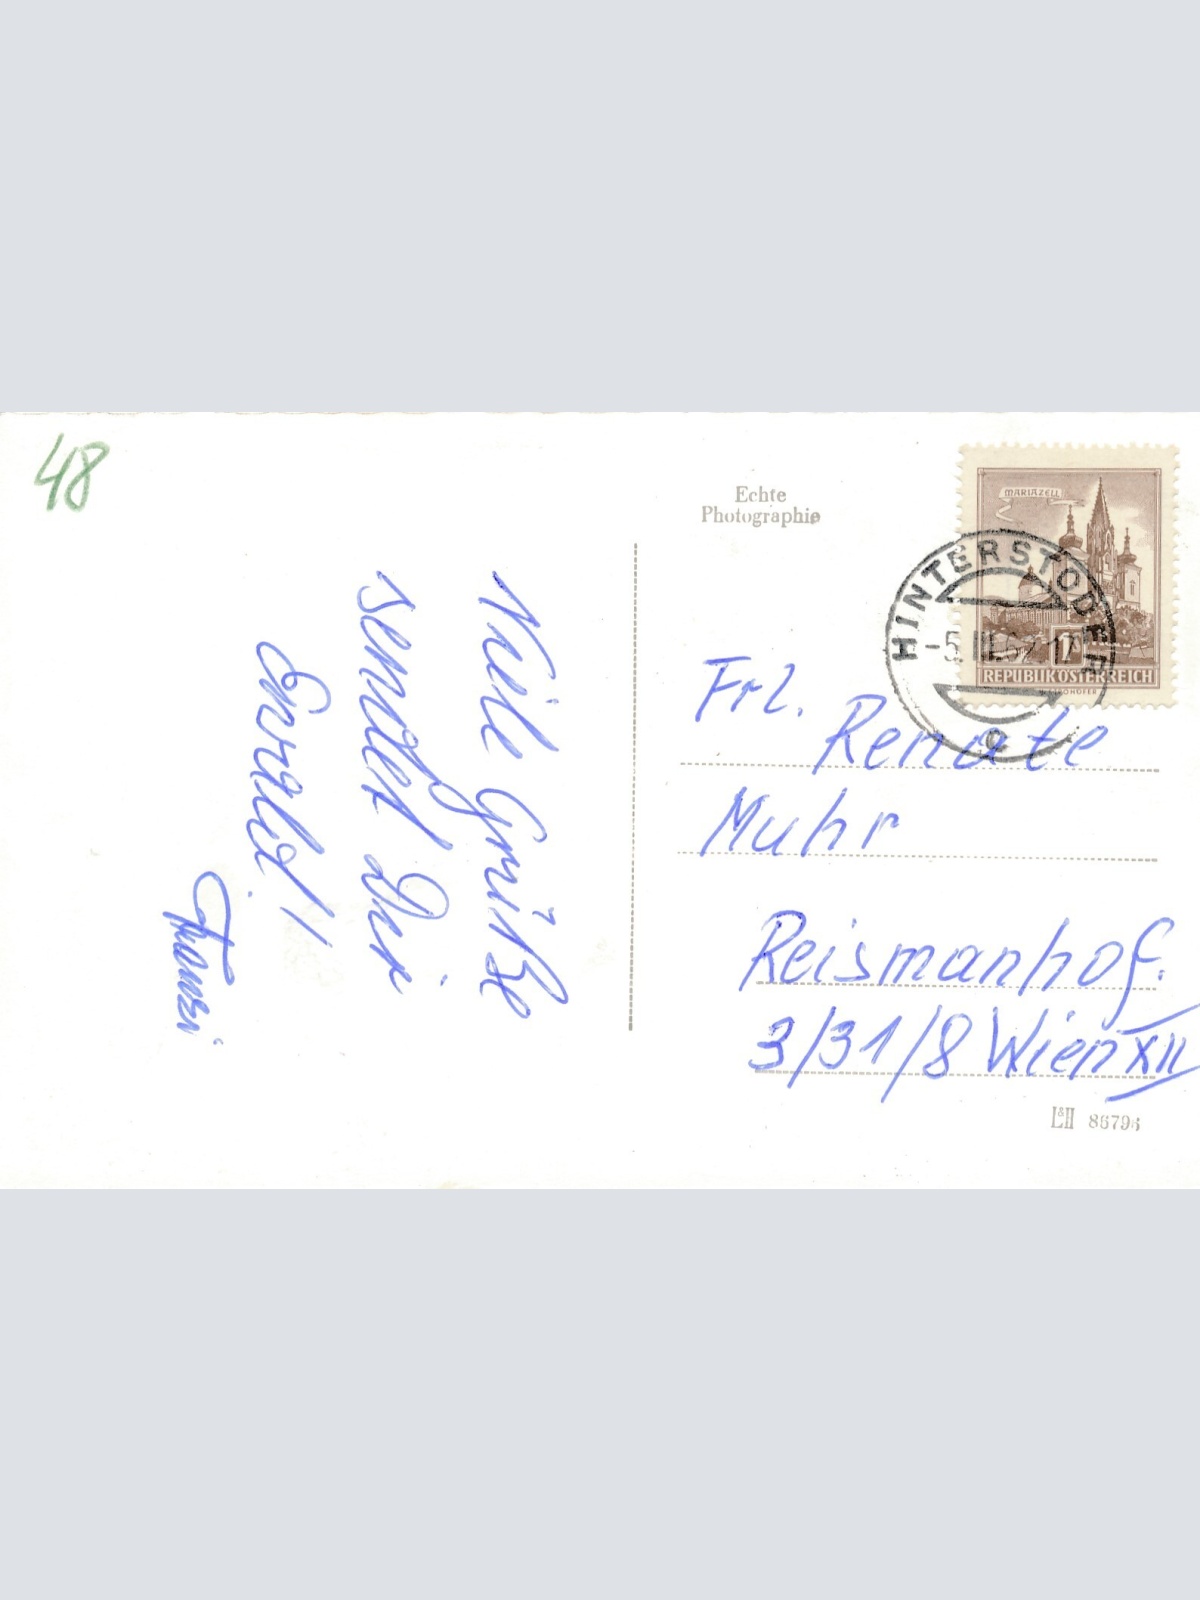 48
Viele Grüße
sendet Dir
Ewald!
Echte
Photographie
MARIAZELL
HINTERSTODER
-5.III.62-17
REPUBLIK ÖSTERREICH
Frl.
Renate
Muhr
Reismanhof.
3/31/8 Wien XII
L&H 86796